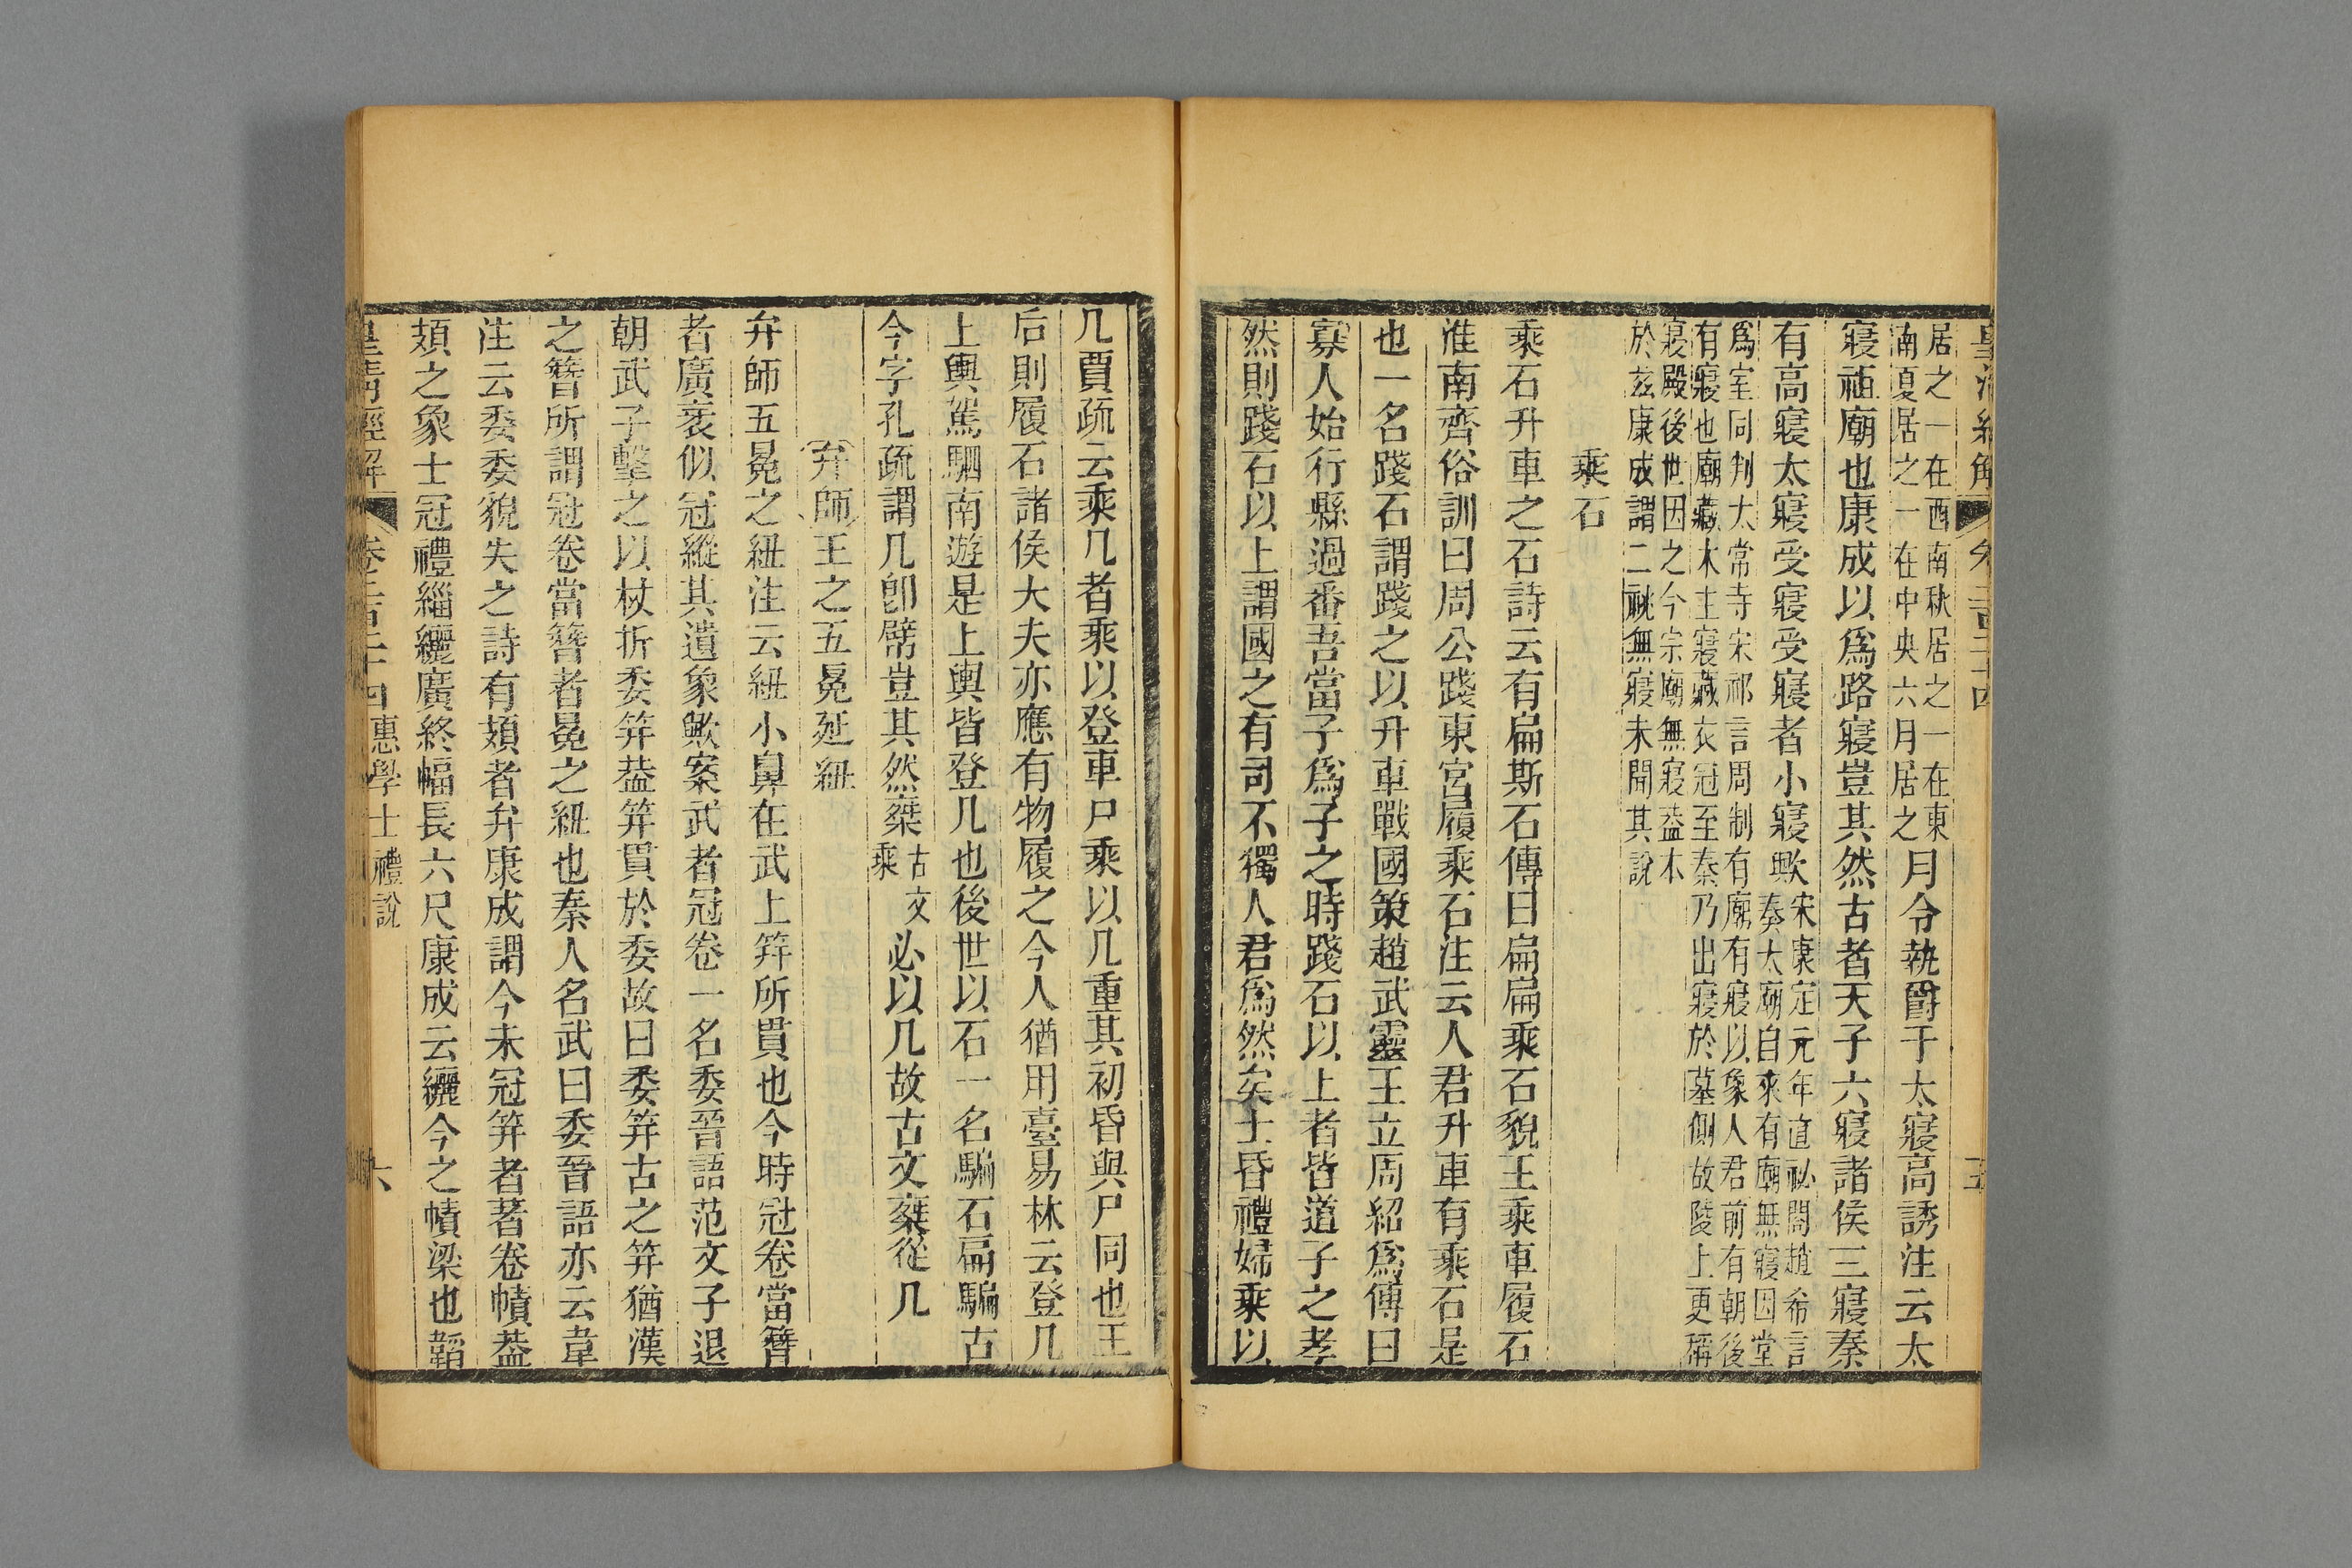 皇清經解 卷二百二十四 五
居之一在西南秋居之一在東
南夏居之一在中央六月居之
月令執爵于太寢高誘注云太
寢祖廟也康成以爲路寢豈其然古者天子六寢諸侯三寢秦
有高寢太寢受寢受寢者小寢歟
宋康定元年直祕閣趙希言
奏太廟自來有廟無寢因堂
爲室同判太常寺宋祁言周制有廟有寢以象人君前有朝後
有寢也廟藏木主寢藏衣冠至秦乃出寢於墓側故陵上更稱
寢殿後世因之今宗廟無寢蓋本
於茲康成謂二祧無寢未聞其說
乘石
乘石升車之石詩云有扁斯石傳曰扁扁乘石貌王乘車履石
淮南齊俗訓曰周公踐東宮履乘石注云人君升車有乘石是
也一名踐石謂踐之以升車戰國策趙武靈王立周紹爲傅曰
寡人始行縣過番吾當子爲子之時踐石以上者皆道子之孝
然則踐石以上謂國之有司不獨人君爲然矣士昏禮婦乘以
几賈疏云乘几者乘以登車尸乘以几重其初昏與尸同也王
后則履石諸侯大夫亦應有物履之今人猶用臺易林云登几
上輿駕駟南遊是上輿皆登几也後世以石一名騙石扁騙古
今字孔疏謂几卽幦豈其然椉
古文
乘
必以几故古文椉從几
弁師王之五冕延紐
弁師五冕之紐注云紐小鼻在武上笄所貫也今時冠卷當簪
者廣袤似冠縰其遺象歟案武者冠卷一名委晉語范文子退
朝武子擊之以杖折委笄葢笄貫於委故曰委笄古之笄猶漢
之簪所謂冠卷當簪者冕之紐也秦人名武曰委晉語亦云韋
注云委委貌失之詩有頍者弁康成謂今未冠笄者著卷幘葢
頍之象士冠禮緇纚廣終幅長六尺康成云纚今之幘梁也韜
皇清經解 卷二百二十四 惠學士禮說 六